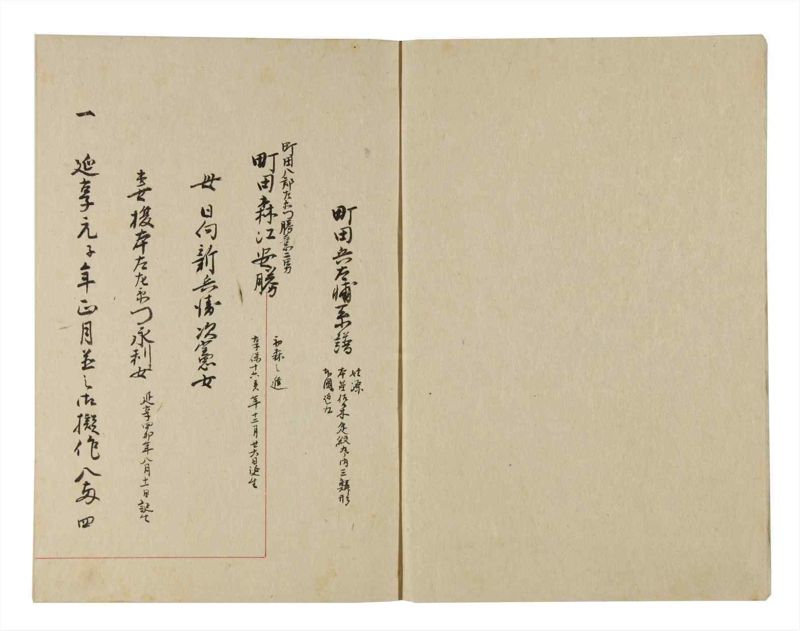 町田兵左衛系譜
姓源
本苗佐々木 定紋丸ノ内三鱗形
本國近江
町田八郎左衛門勝*二男
町田森江安勝
初森之進
享保十六亥年十二月廿六日誕生
母 日向新兵衛次憲女
妻榎本左左衛門永利女
延享四卯年八月十一日誕生
一 延享元子年正月並之御擬作八両四